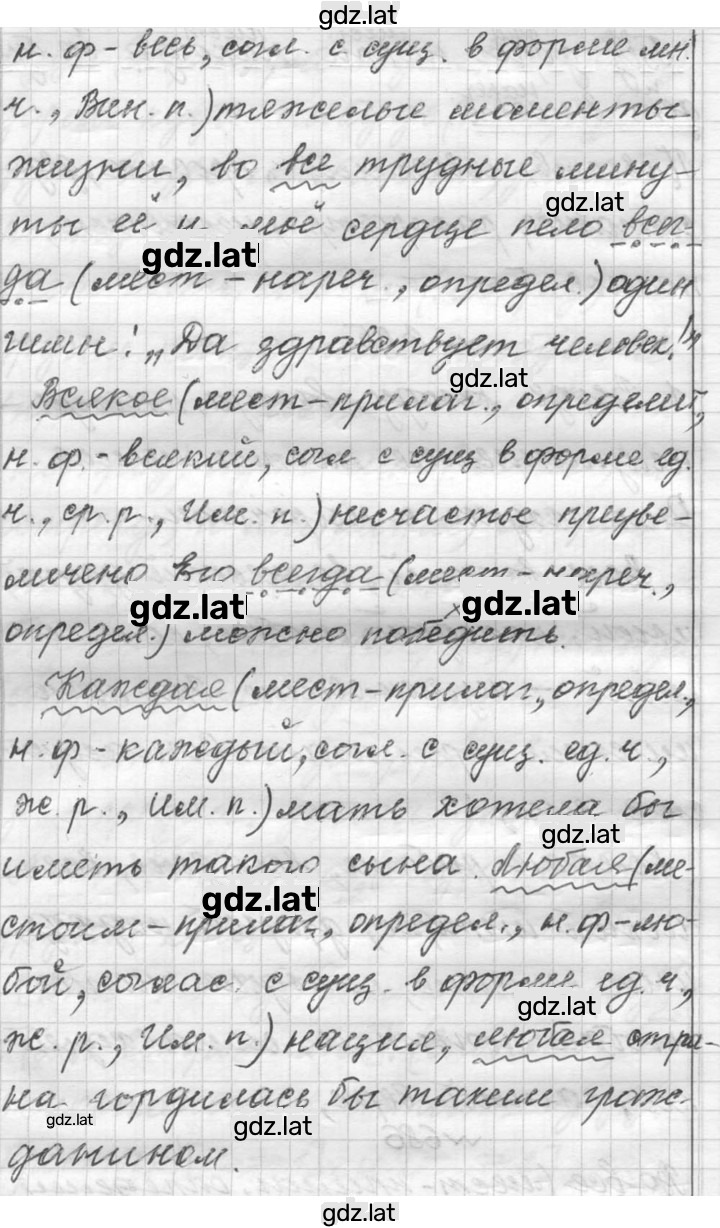 gdz.lat
н. ф - весь, согл. с сущ. в форме мн.
ч., Вин. п.) тяжелые моменты
жизни, во все трудные мину-
gdz.lat
ты её и моё сердце пело всег-
gdz.lat
да (мест - нареч., определ.) один
гимн: "Да здравствует человек!"
gdz.lat
Всякое (мест-прилаг., определит,
н. ф. - всякий, согл с сущ в форме ед.
ч., ср. р., Им. п.) несчастье преуве-
личено его всегда (мест - нареч.,
gdz.lat gdz.lat
определ.) можно победить.
Каждая (мест-прилаг., определ.,
н. ф - каждый, согл. с сущ. ед. ч.,
ж. р., Им. п.) мать хотела бы
gdz.lat
иметь такого сына. Любая (ме-
gdz.lat
стоим-прилаг, определ., н. ф-лю-
бой, соглас. с сущ. в форме ед. ч.,
gdz.lat
ж. р., Им. п.) нация, любая стра-
на гордилась бы таким граж-
gdz.lat
gdz.lat
данином.
gdz.lat